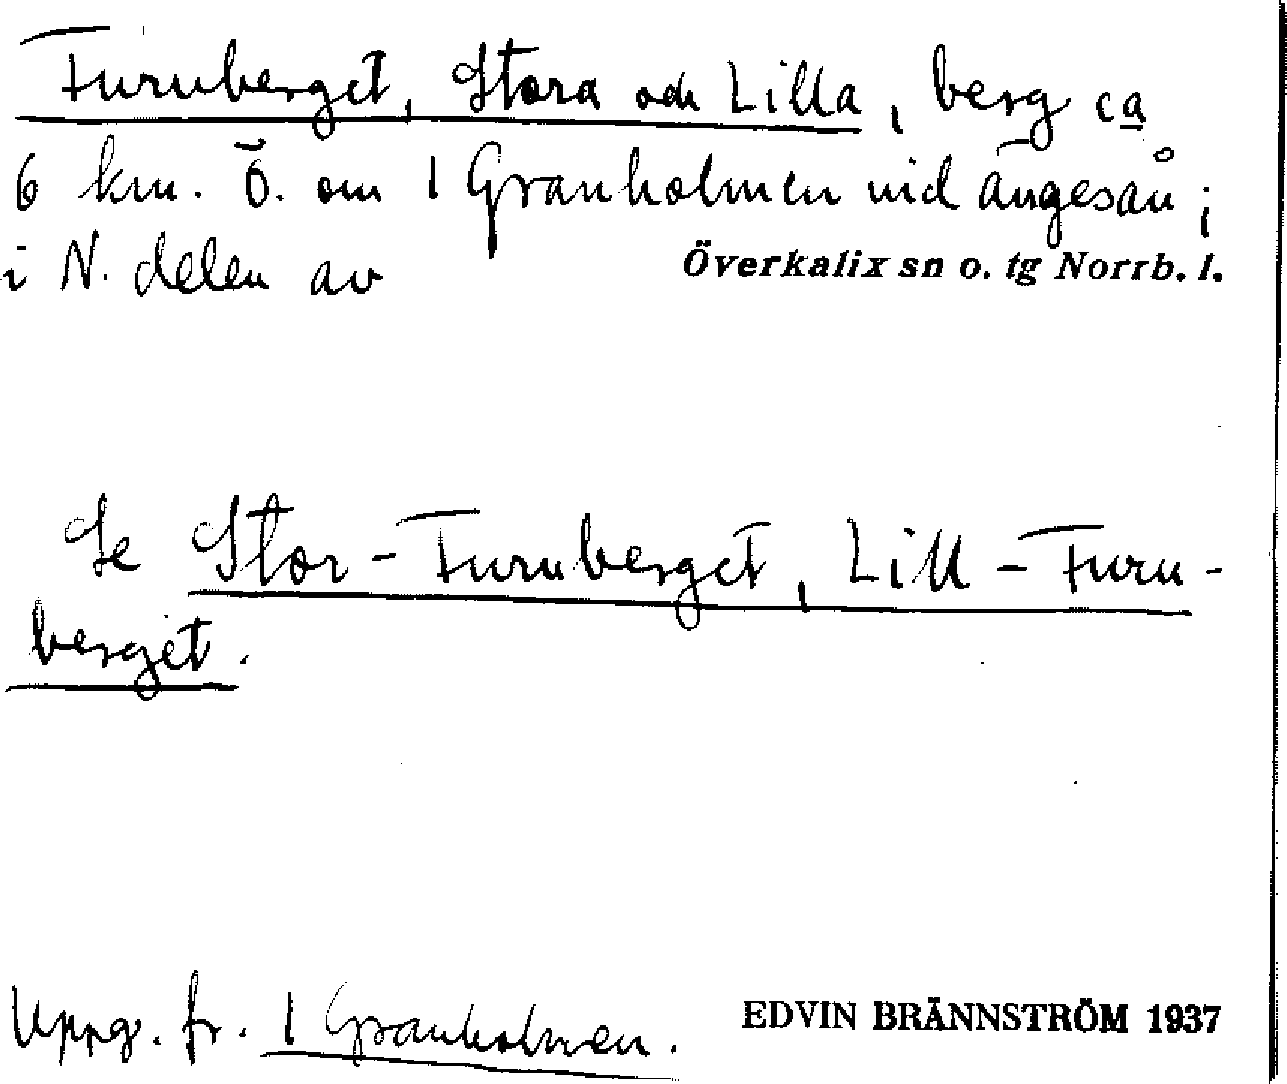 Furuberget, Stora och Lilla, berg ca
6 km. Ö. om 1 Granholmen vid Ängesån;
i N. delen av Överkalix sn o. tg Norrb. l.
Se Stor-Furuberget, Lill-Furu-
berget.
Uppg. fr. 1 Granholmen. EDVIN BRÄNNSTRÖM 1937